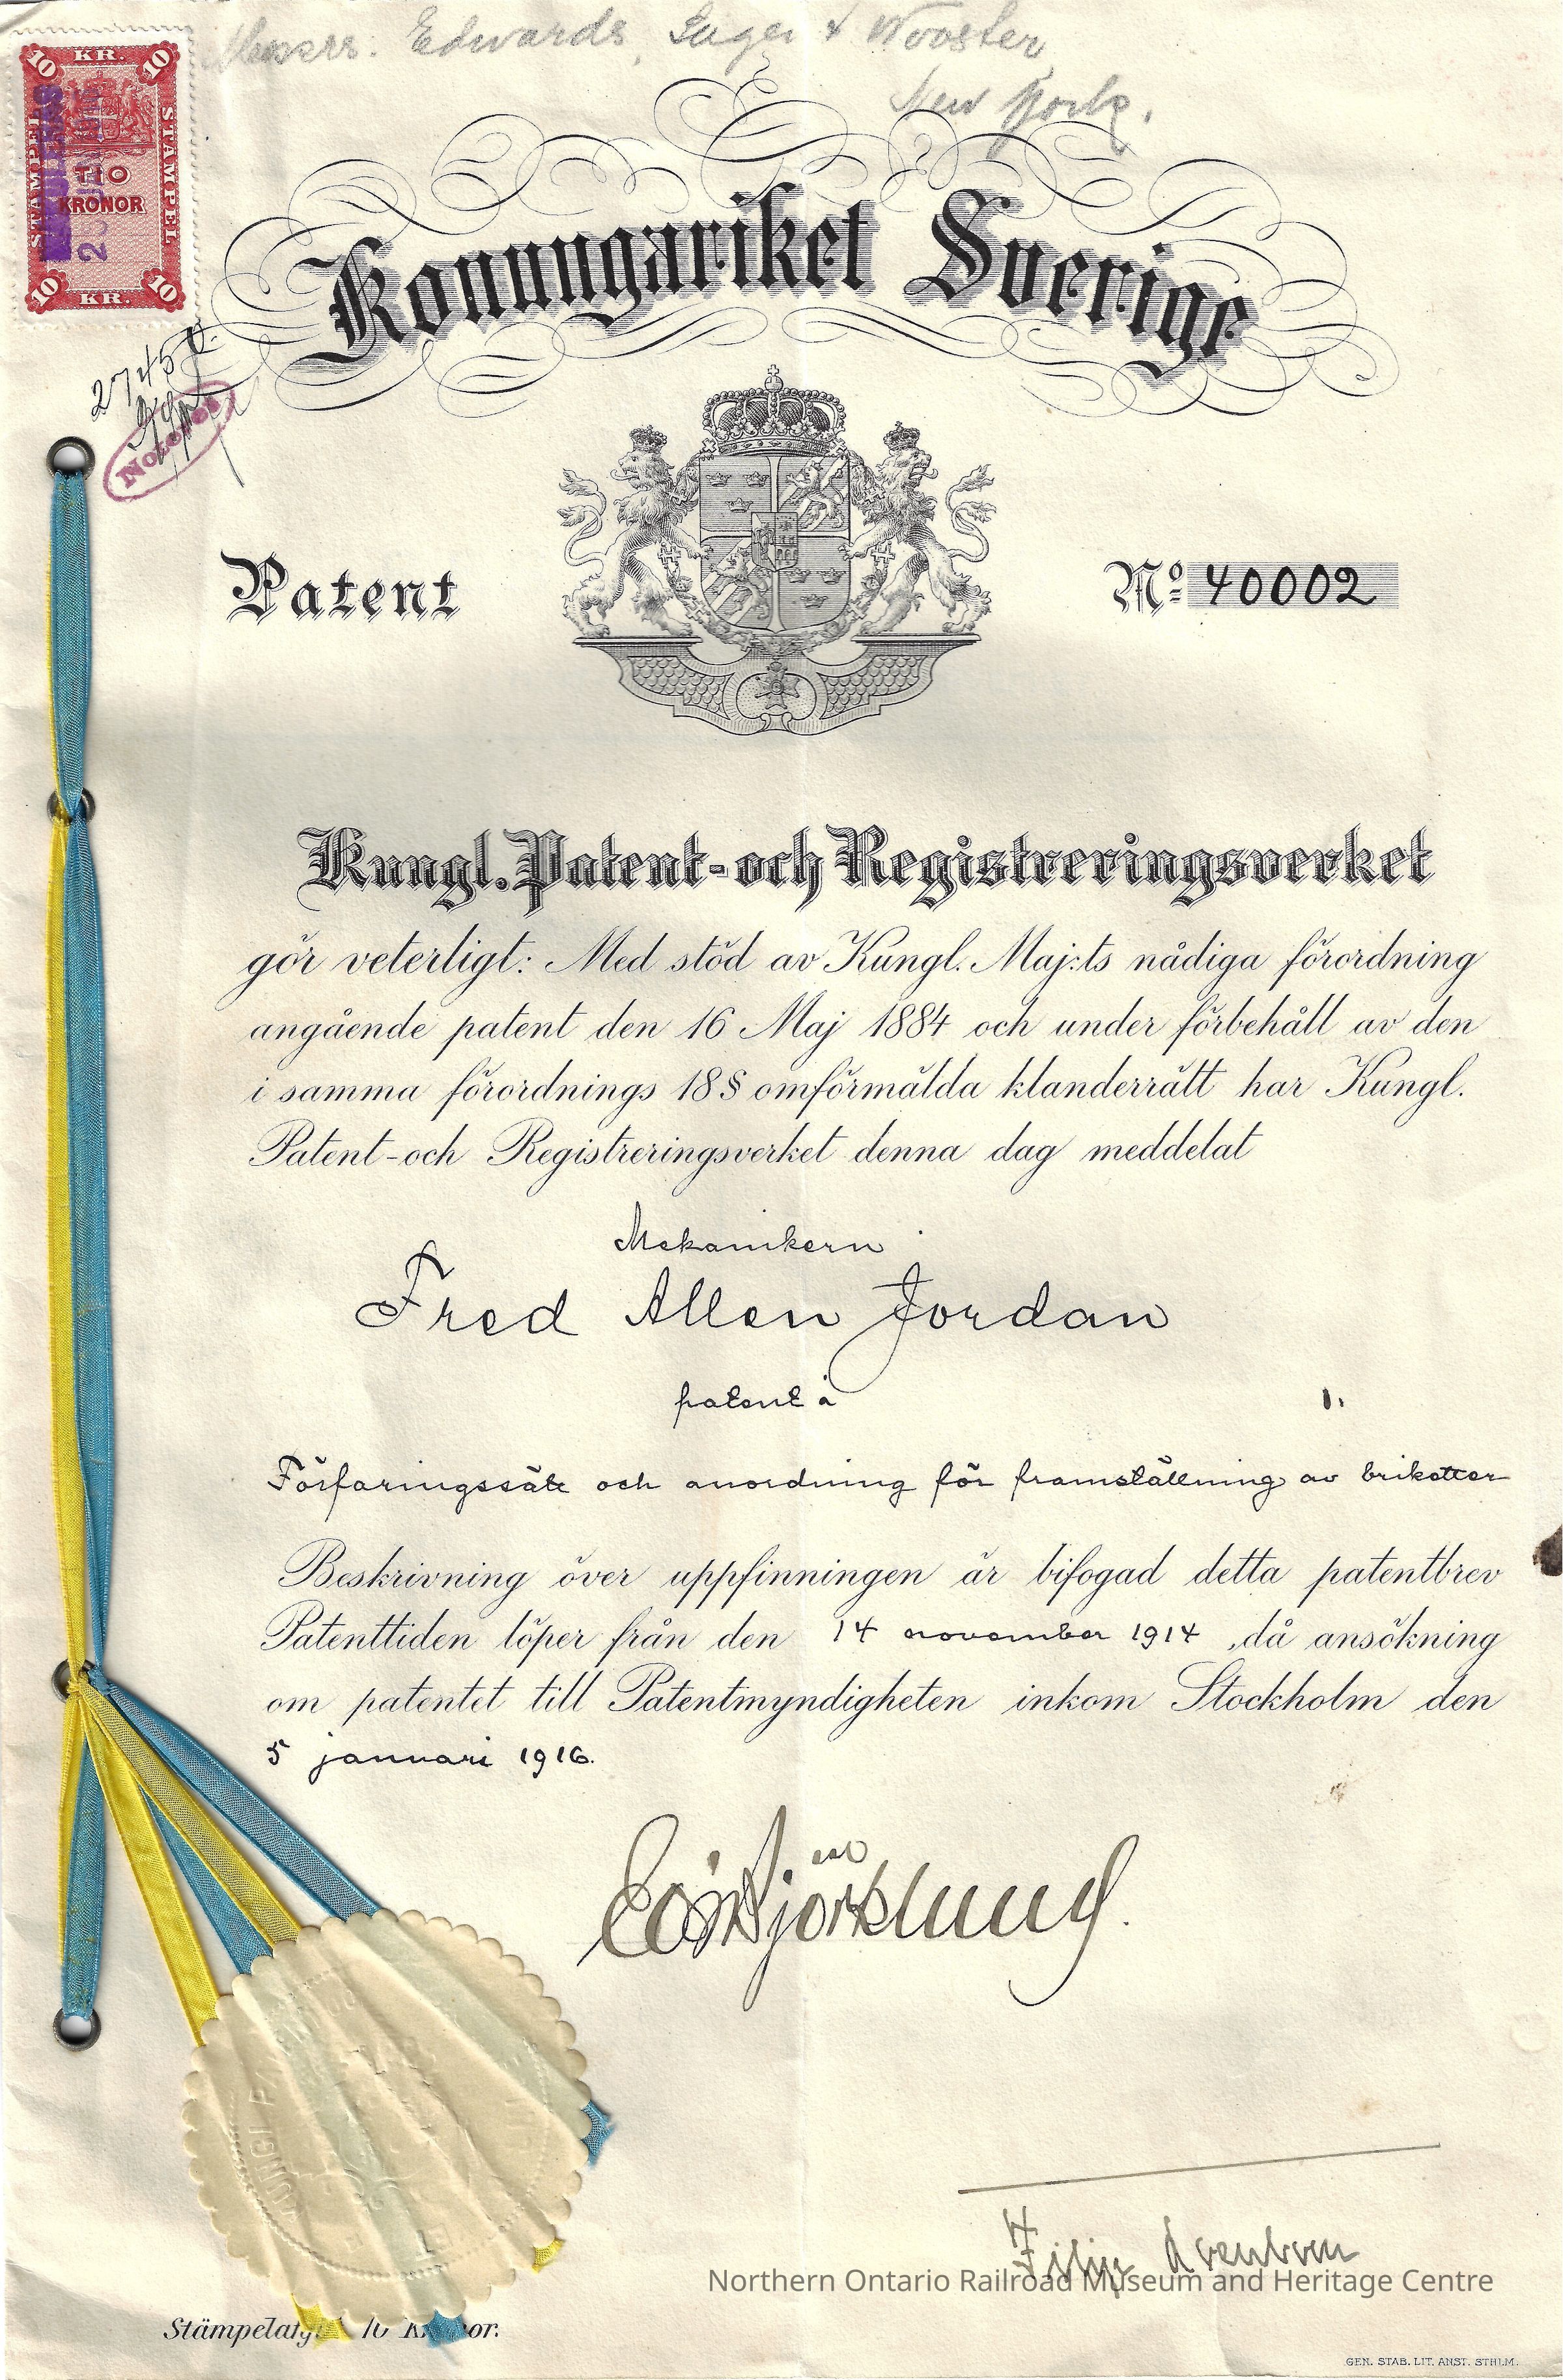 Messrs. Edwards, Sager & Wooster
New York.
10 KR. 10
STÄMPEL
STÄMPEL
TIO
KRONOR
10 KR. 10
Konungariket Sverige
Noteras
Patent
No 40002
Kungl. Patent- och Registreringsverket
gör veterligt: Med stöd av Kungl. Maj:ts nådiga förordning
angående patent den 16 Maj 1884 och under förbehåll av den
i samma förordnings 18 § omförmälda klanderrätt har Kungl.
Patent- och Registreringsverket denna dag meddelat
Mekanikern
Fred Allen Jordan
patent å
Förfaringssätt och anordning för framställning av briketter
Beskrivning över uppfinningen är bifogad detta patentbrev
Patenttiden löper från den 14 november 1914, då ansökning
om patentet till Patentmyndigheten inkom Stockholm den
5 januari 1916.
Björklund.
Filip
Northern Ontario Railroad Museum and Heritage Centre
GEN. STAB. LIT. ANST. STHLM.